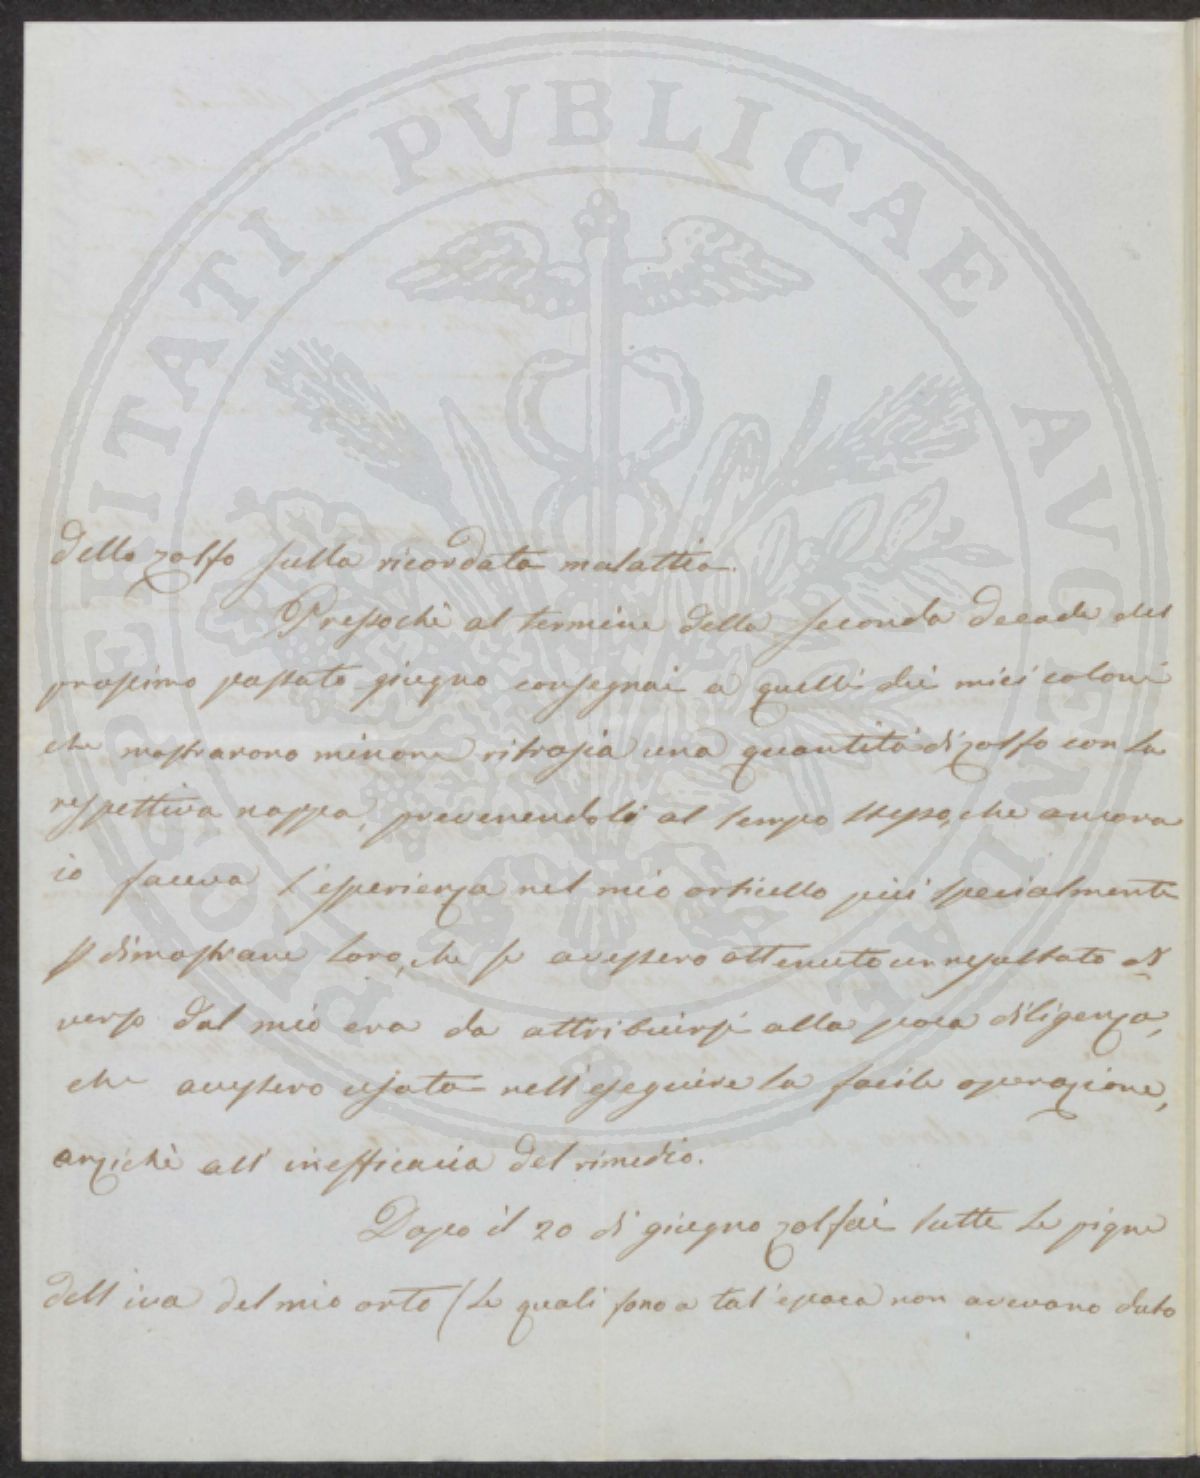 dello zolfo sulla ricordata malattia.
Pressochè al termine della seconda decade del
prossimo passato giugno consegnai a quelli dei miei coloni
che mostrarono minore ritrosia una quantità di zolfo con la
respettiva nappa, prevenendoli al tempo stesso, che ancora
io faceva l'esperienza nel mio orticello più specialmente
p dimostrare loro, che se avessero ottenuto un resultato di
verso dal mio era da attribuirsi alla poca diligenza,
che avessero usata nell'eseguire la facile operazione,
anzichè all'inefficacia del rimedio.
Dopo il 20 di giugno zolfai tutte le pigne
dell'uva del mio orto (le quali fono a tal'epoca non avevano dato
PROSPERITATI PVBLICAE AVGENDAE